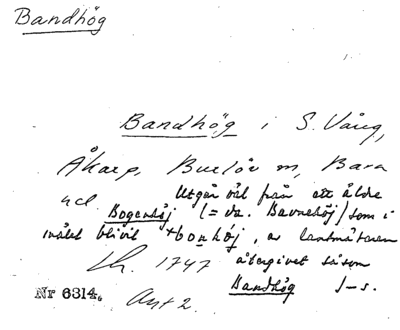 Bandhög
Bandhög i S. Vång,
Åkarp, Burlöv sn, Bara
Utgår väl från ett äldre
Bogenhöj (= da. Bavnehöj) som i
målet blivit +bonhöj, av lantmätaren
1747 återgivet såsom
Bandhög J-s.
Nr 6314. Avs 2.